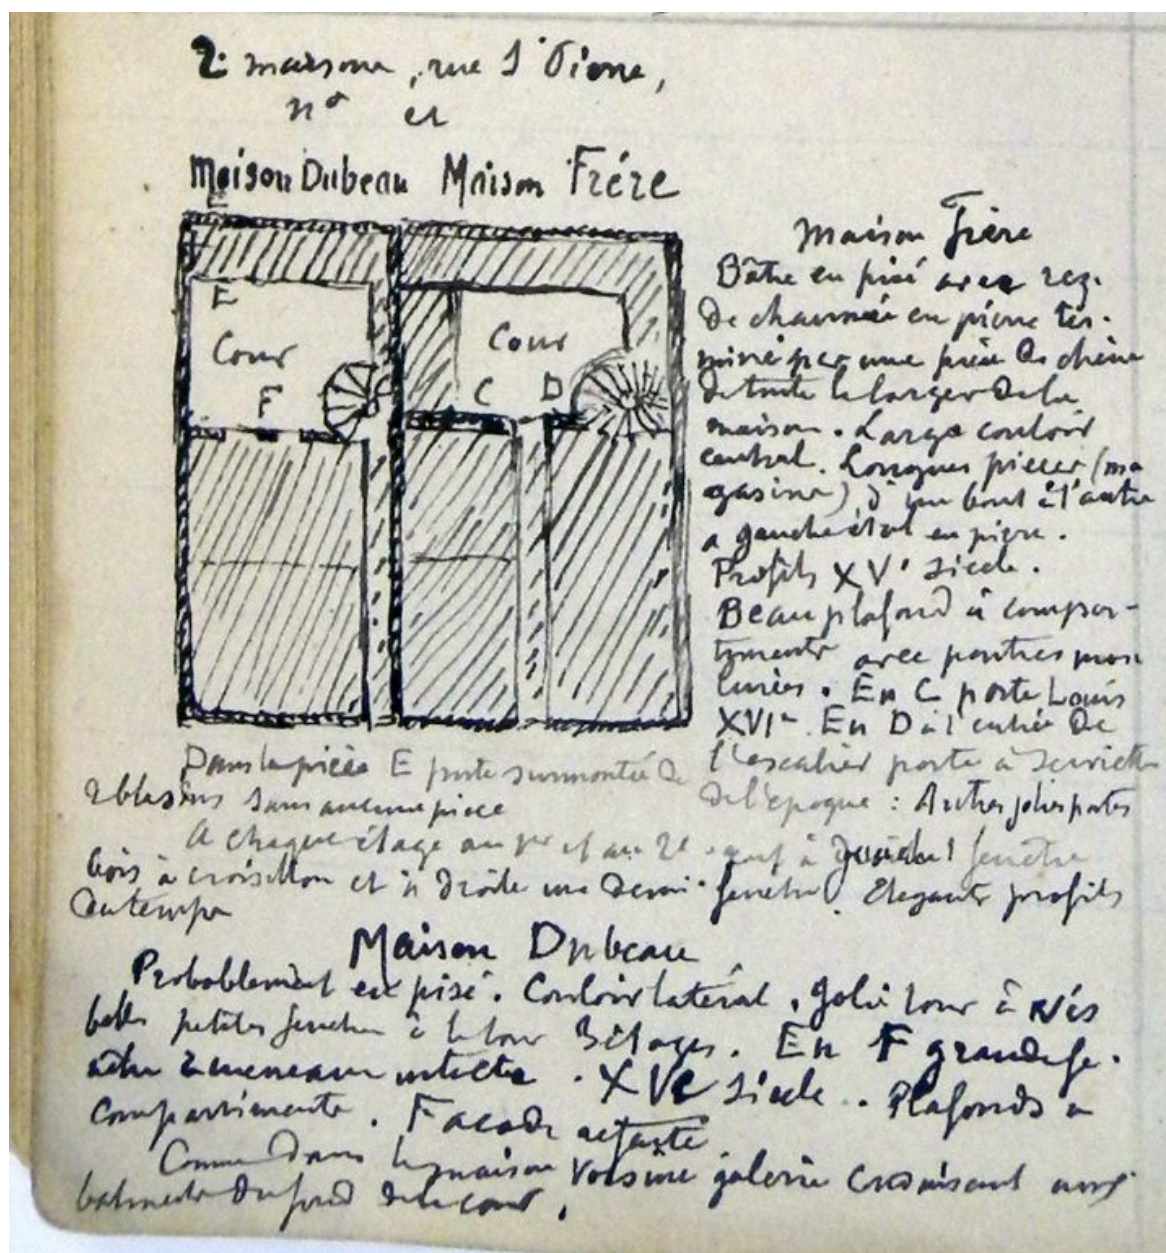 2 maisons, rue St Pierre,
nos et
Maison Dubeau Maison Frére
E
E
Cour
F
Cour
C D
Maison Frère
Bâtie en pisé avec rez-
de chaussée en pierre ter-
miné par une pièce de chêne
de toute la largeur de la
maison. Large couloir
central. Longues pièces (ma
gasins) d'un bout à l'autre
a gauche étal en pierre.
Profils XVe siècle.
Beau plafond à compar-
timents avec poutres mou
lurées. En C porte Louis
XVI. En D à l'entrée de
l'escalier porte à serviette
de l'époque : Autres jolies portes
Dans la pièce E porte surmontée de
2 blasons sans aucune pièce
A chaque étage au 1er et au 2e à fenêtre
bois à croisillon et à droite une demi-fenêtre. Elégants profils
du temps
Maison Dubeau
Probablement en pisé. Couloir latéral. Jolie tour à vis
belles petites fenêtres à la tour 3 étages. En F grande fe-
nêtre à meneaux intacte. XVe siècle. Plafonds a
compartiments. Facade
Comme dans la maison voisine galerie conduisant aux
batiments du fond de la cour.